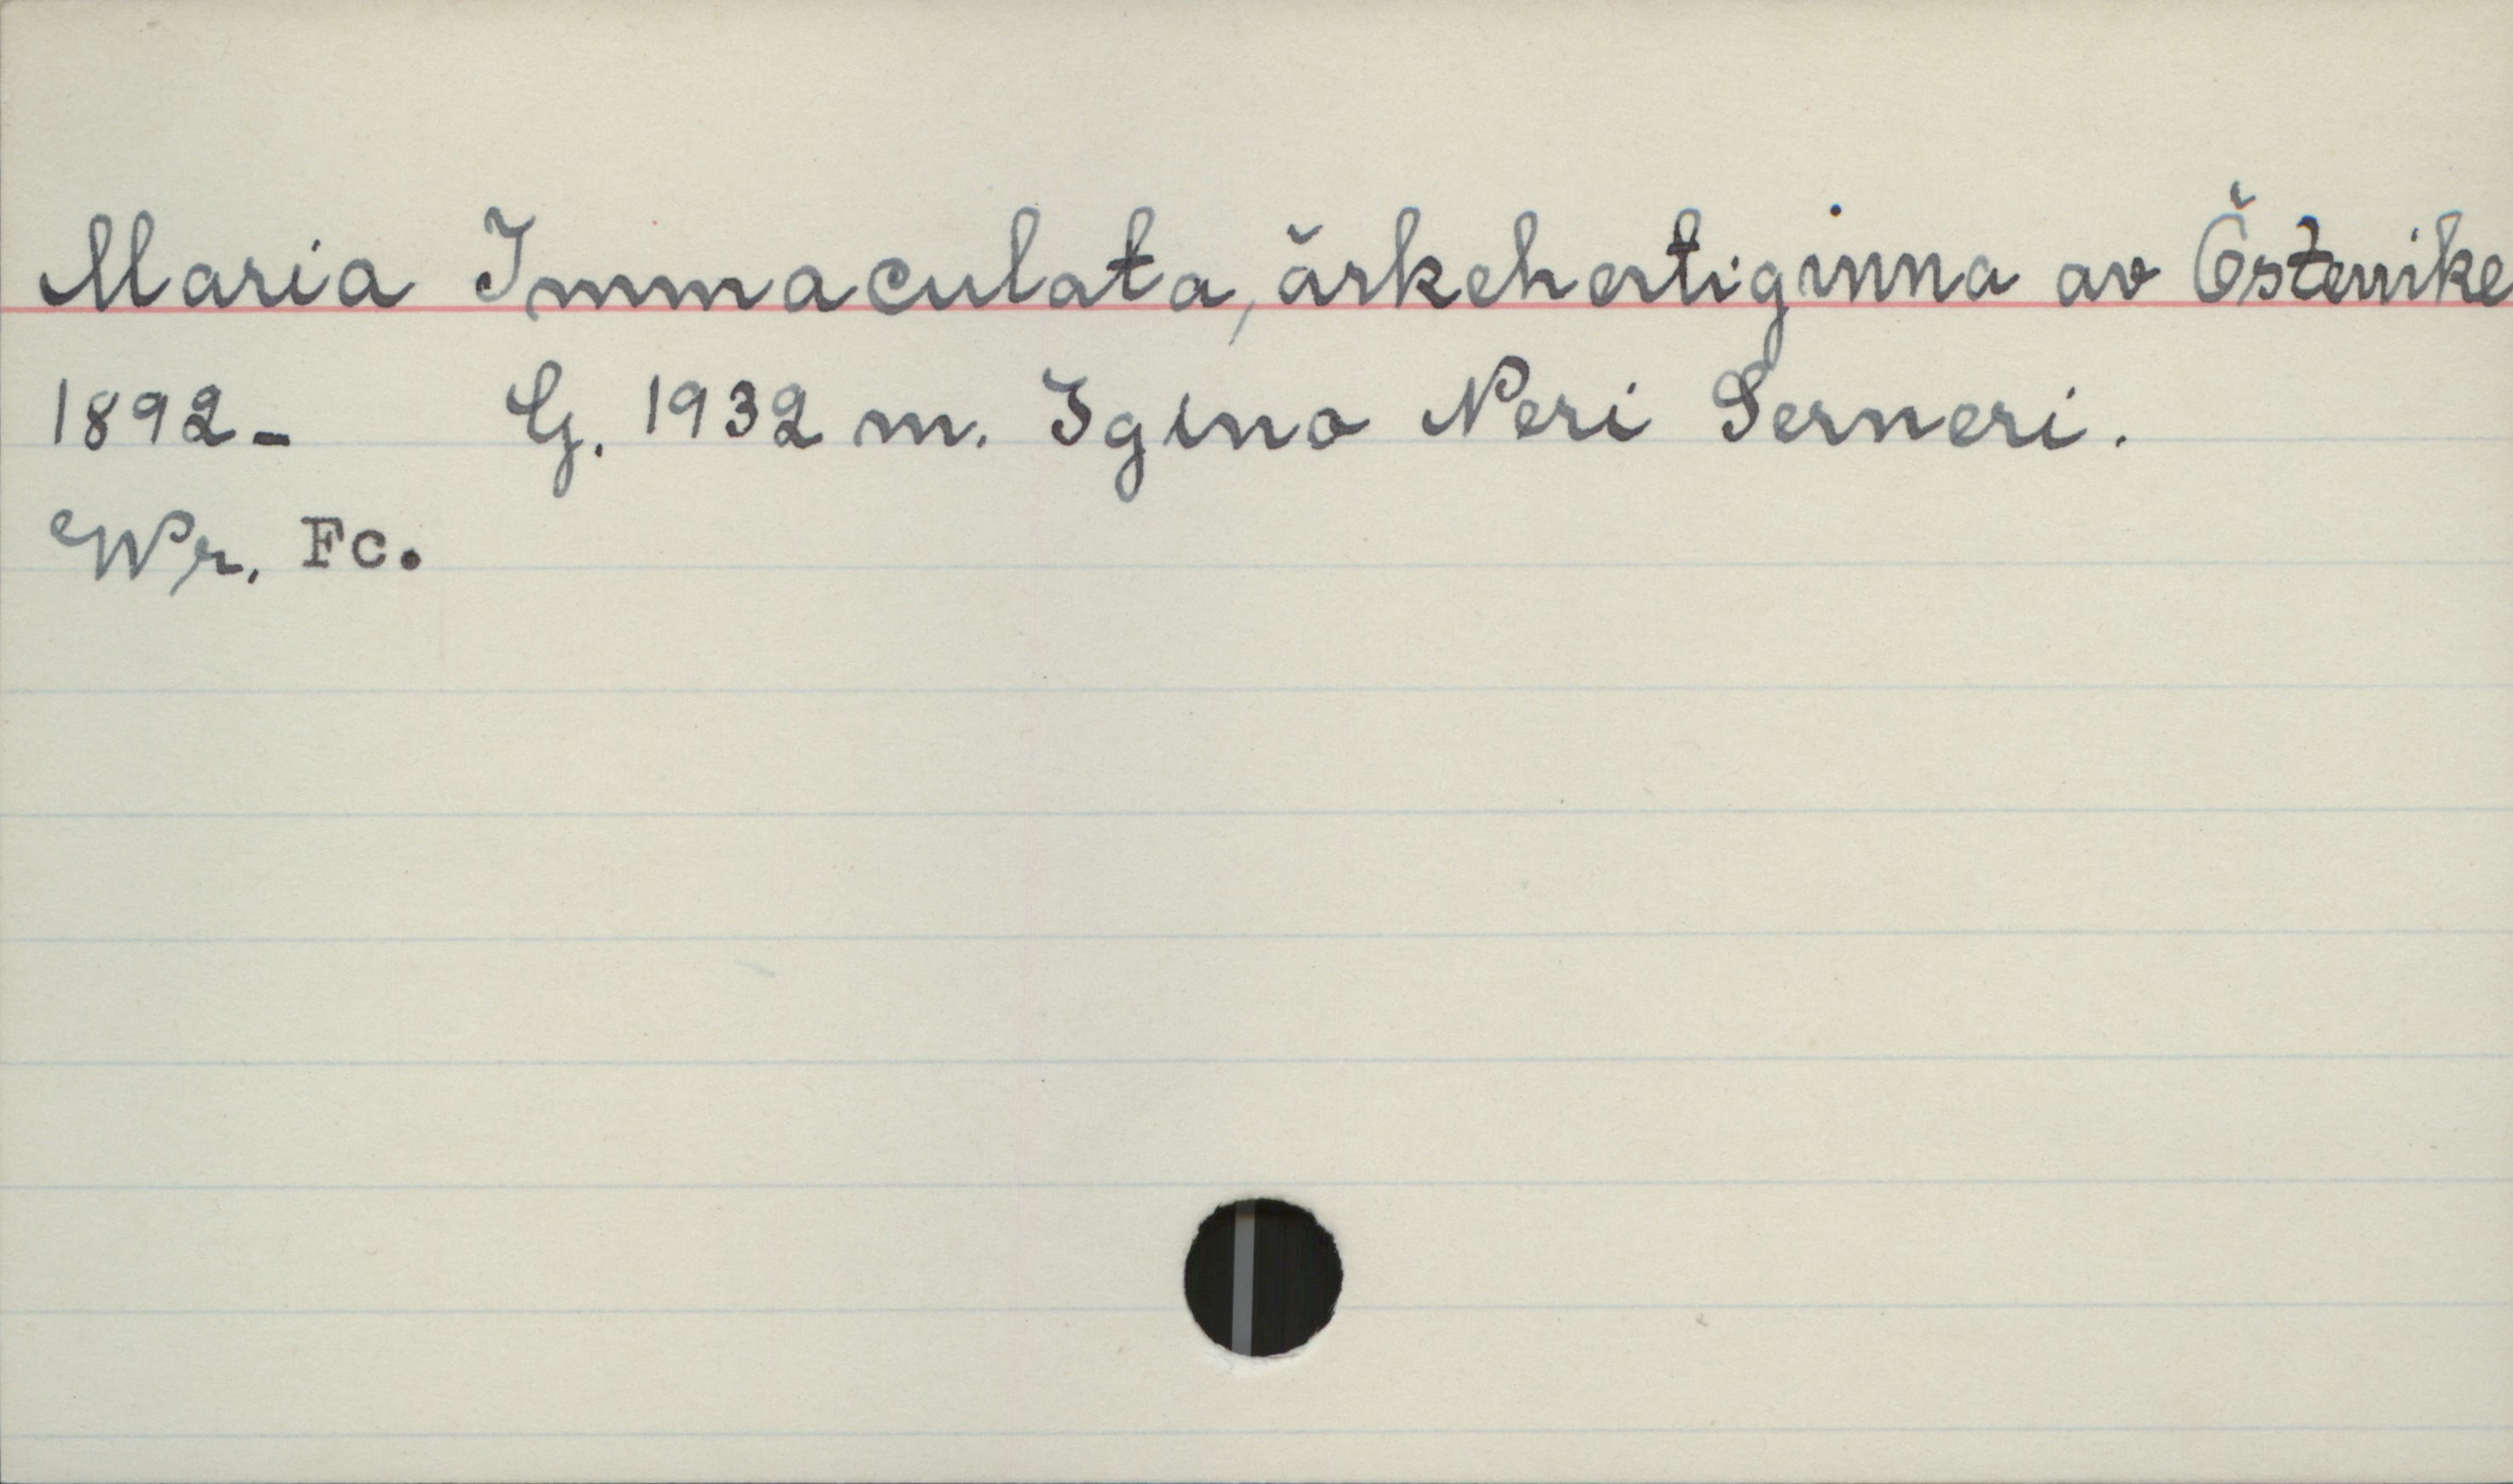 Maria Immaculata, ärkehertiginna av Österrike
1892- G. 1932 m. Igino Neri Serneri.
Wr. Fc.